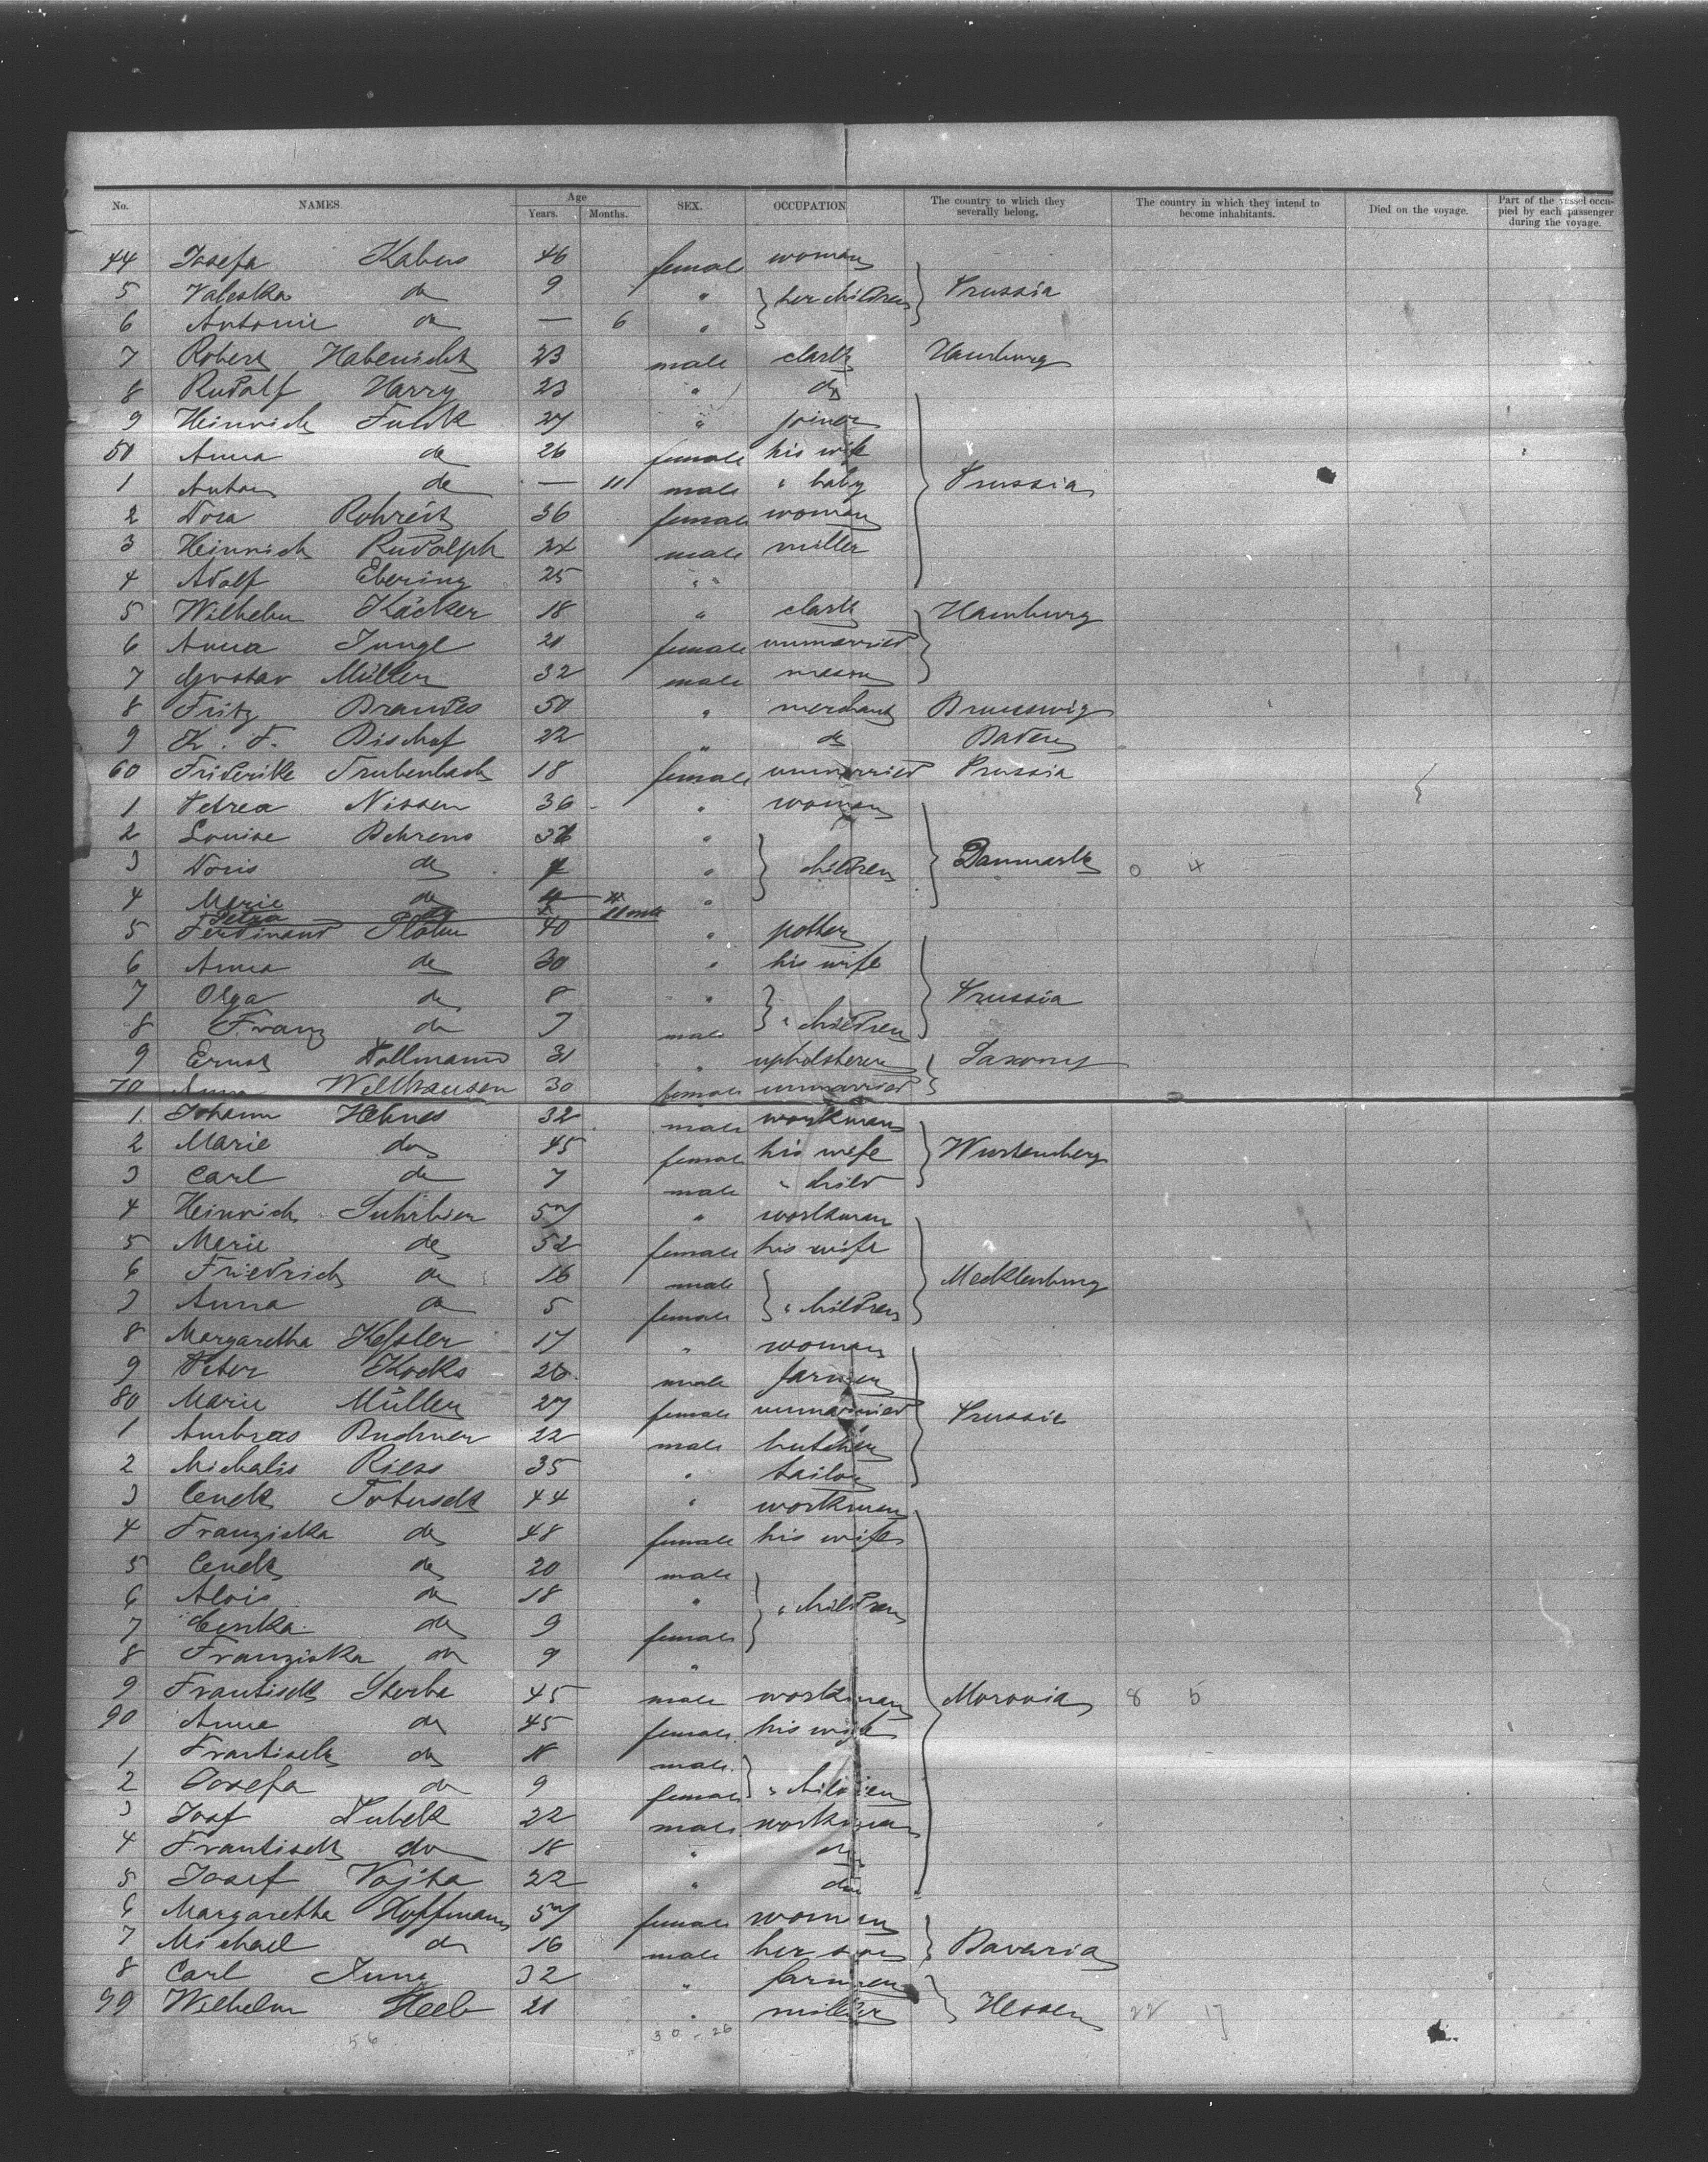 No. NAMES. Age Years. Months. SEX. OCCUPATION The country to which they severally belong. The country in which they intend to become inhabitants. Died on the voyage. Part of the vessel occupied by each passenger during the voyage.
44 Josefa Kabus 46 female woman
5 Valeska do 9 " } her children } Prussia
6 Antonie do — 6 "
7 Robert Habenicht 23 male clark Hamburg
8 Rudolf Harry 23 " do
9 Heinrich Fulok 27 " joiner
50 Anna do 26 female his wife
1 Anton do — 11 male " baby } Prussia
2 Dora Rohreit 36 female woman
3 Heinrich Rudolph 24 male miller
4 Adolf Ebering 25 " "
5 Wilhelm Käcker 18 " clark Hamburg
6 Anna Junge 21 female unmarried }
7 Gustav Müller 32 male mason
8 Fritz Brandes 50 " merchant Brunswig
9 K. F. Bischof 22 " do Baden
60 Friderike Trubenbach 18 female unmarried Prussia
1 Petrea Nissen 36 " woman
2 Louise Behrens "
3 Doris do " } children } Danmark 0 4
4 Marie do "
Petra do
5 Ferdinand Plöhn 40 " potter
6 Anna do 30 " his wife
7 Olga do 8 " } Prussia
8 Franz do 7 male } " children
9 Ernst Dollmann 31 " upholsterer } Saxony
70 Anna Wellhausen 30 female unmarried
1 Johann Hehnes 32 male workman
2 Marie do 45 female his wife } Wurtemberg
3 Carl do 7 male " child
4 Heinrich Suhrbier 57 " workman
5 Marie do 52 female his wife
6 Friedrich do 16 male } Mecklenburg
7 Anna do 5 female } " children
8 Margaretha Kessler 17 " woman
9 Peter Kocks 26 male farmer
80 Marie Müller 27 female unmarried } Prussia
1 Ambros Buchner 22 male butcher
2 Michalis Riess 35 " tailor
3 Cenek Totusek 44 " workman
4 Franziska do 48 female his wife
5 Cenek do 20 male
6 Alois do 18 " } " children
7 Cenka do 9 female
8 Franziska do 9 "
9 Frantisek Sterba 45 male workman } Moravia 8 5
90 Anna do 45 female his wife
1 Frantisek do 11 male
2 Josefa do 9 female } " children
3 Josf Dubek 22 male workman
4 Frantisek do 18 " do
5 Josef Vojta 22 " do
6 Margaretha Hoffmann 57 female woman
7 Michael do 16 male her son } Bavaria
8 Carl Jung 32 " farmer
99 Wilhelm Heeb 21 " miller } Hessen 22 17
56 30 - 26